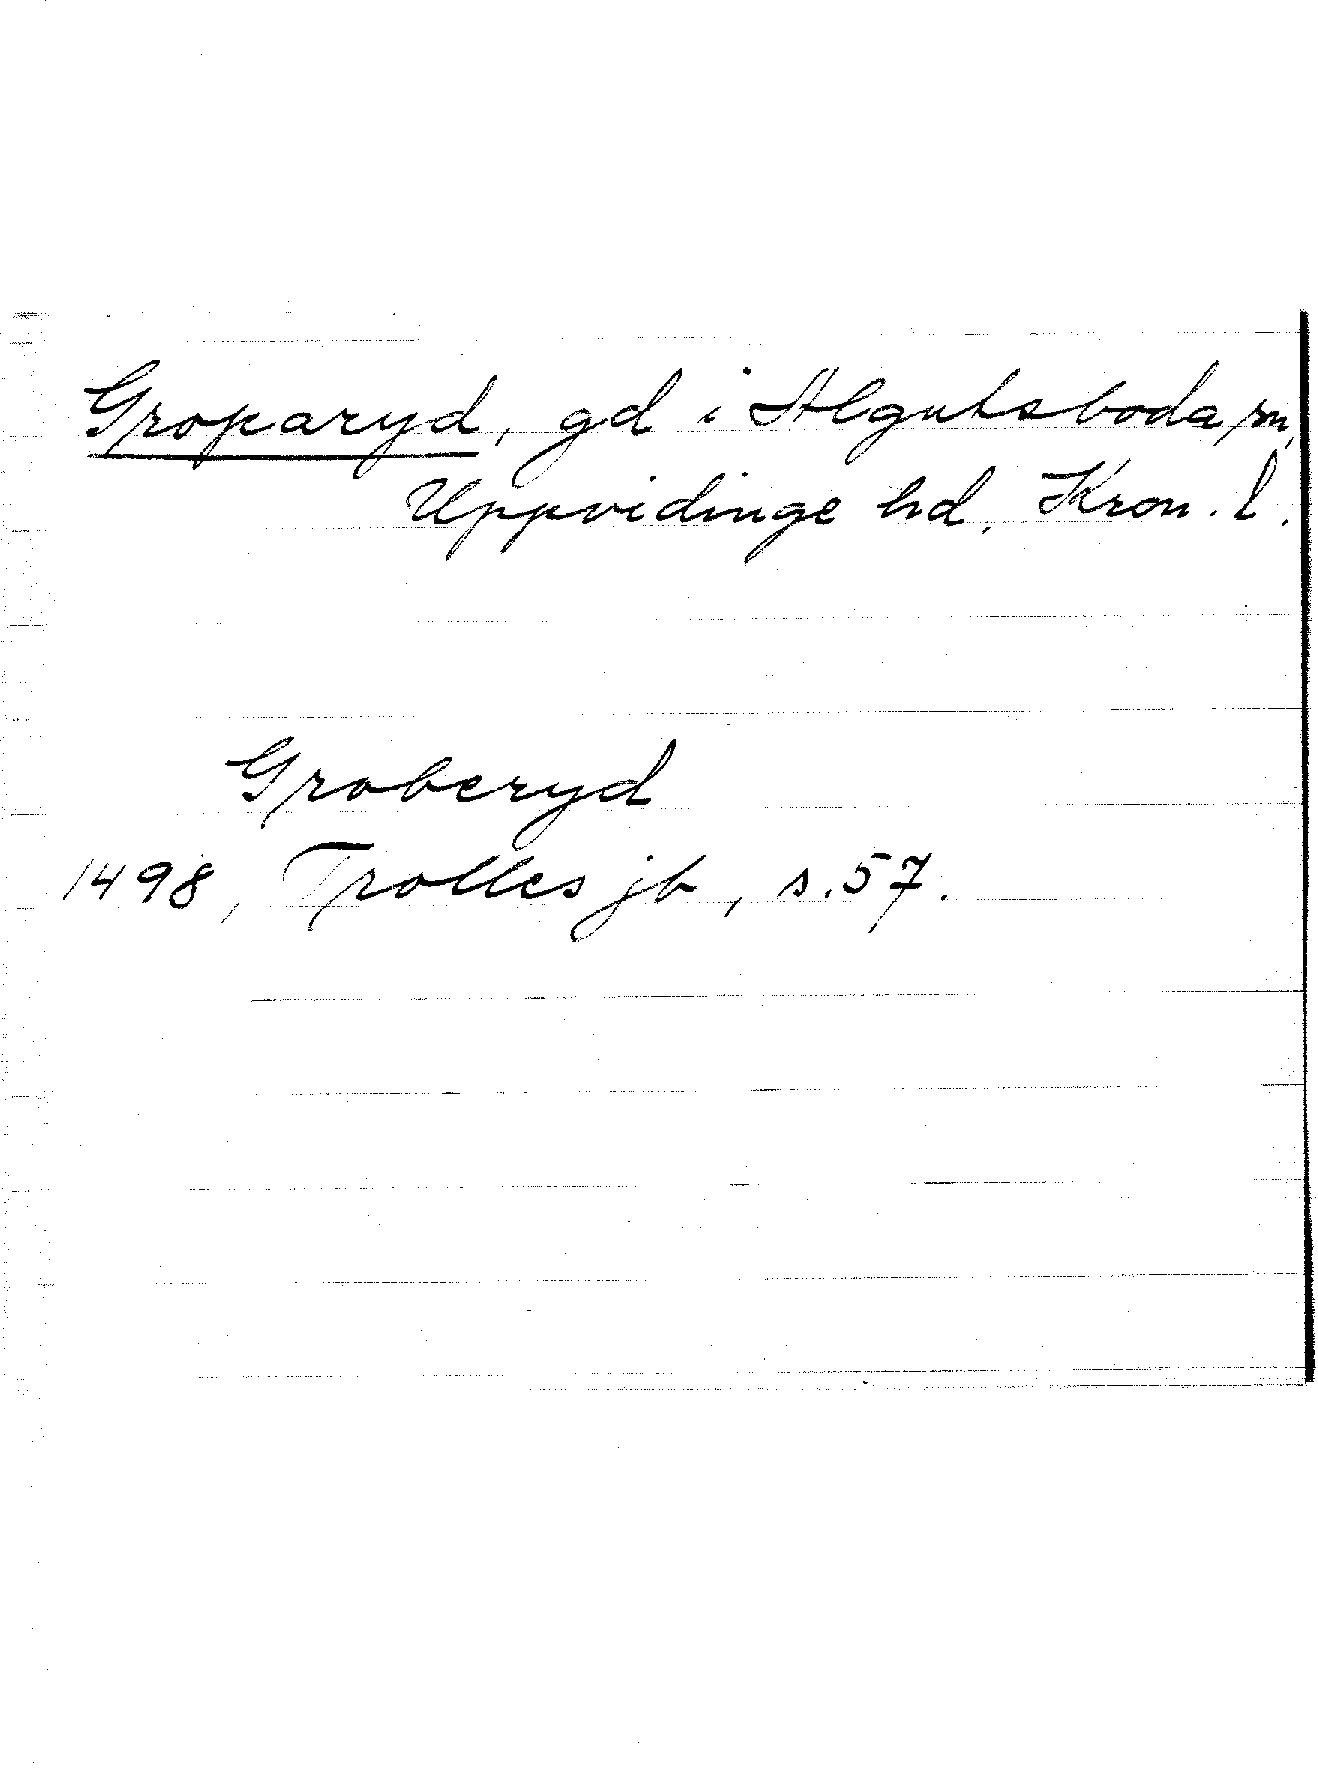 Groparyd, gd i Algutsboda sn,
Uppvidinge hd. Kron. l.
Groberyd
1498, Trolles jb, s. 57.